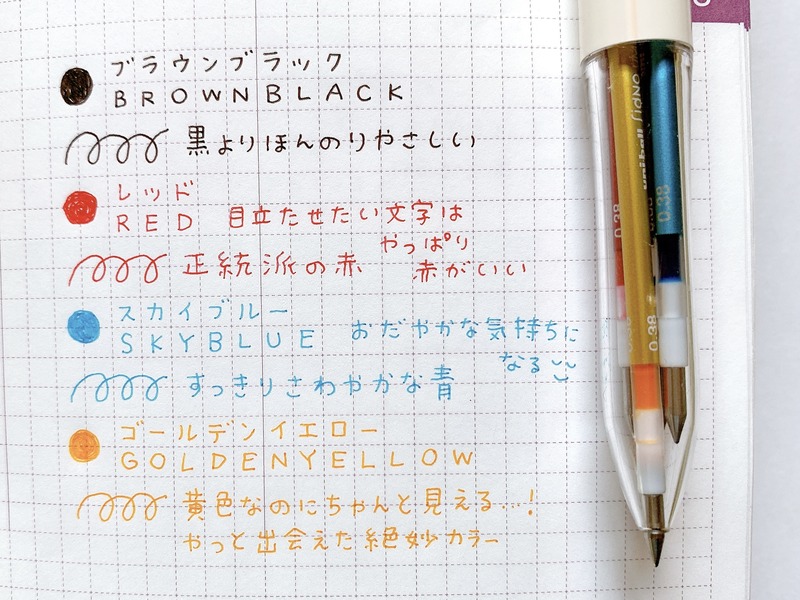 ブラウンブラック
BROWNBLACK
黒よりほんのりやさしい
レッド
RED 目立たせたい文字は
やっぱり
正統派の赤 赤がいい
スカイブルー
SKYBLUE おだやかな気持ちに
なる
すっきりさわやかな青
ゴールデンイエロー
GOLDENYELLOW
黄色なのにちゃんと見える…!
やっと出会えた絶妙カラー
uni-ball SigNO
0.38
0.38
0.38